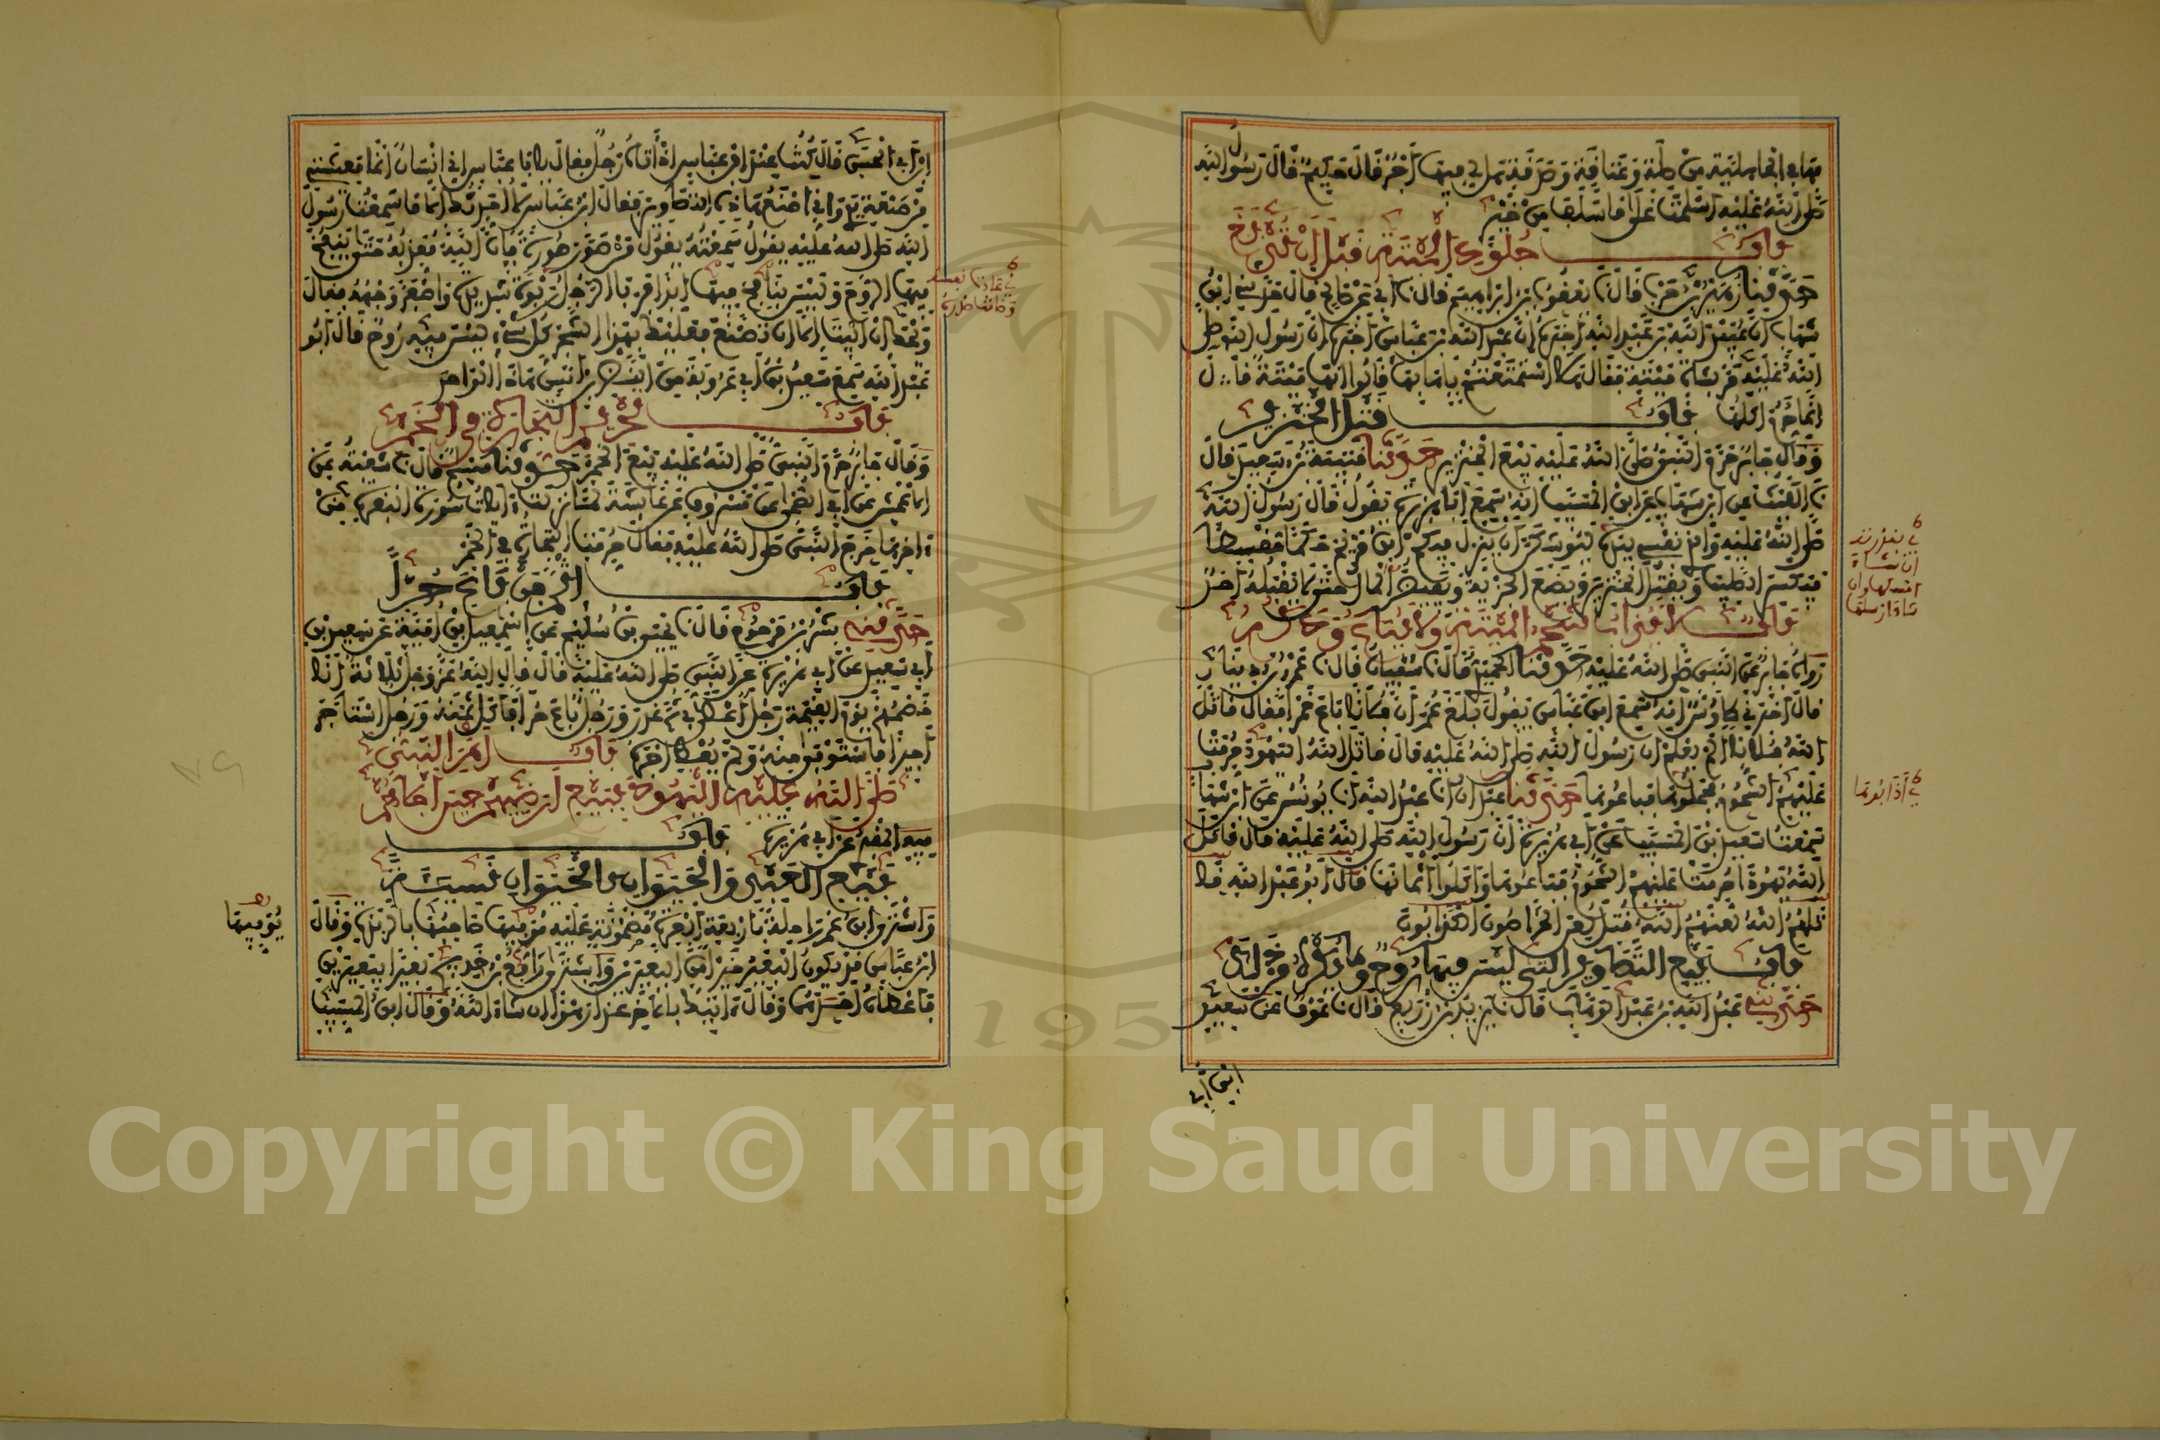 بها في الجاهلية من صلة وعتاقة وصدقة هل لي فيها أجر قال حكيم قال رسول الله
صلى الله عليه أسلمت على ما سلف من خير
باب جلود الميتة قبل أن تدبغ
حدثنا زهير بن حرب قال نا يعقوب بن إبراهيم قال نا أبي عن صالح قال حدثني ابن
شهاب أن عبيد الله بن عبد الله أخبره أن عبد الله بن عباس أخبره أن رسول الله صلى
الله عليه مر بشاة ميتة فقال هلا استمتعتم بإهابها قالوا إنها ميتة قال
إنما حرم أكلها باب قتل الخنزير
وقال جابر حرم النبي صلى الله عليه بيع الخنزير حدثنا قتيبة بن سعيد قال
نا الليث عن ابن شهاب عن ابن المسيب أنه سمع أبا هريرة يقول قال رسول الله
صلى الله عليه والذي نفسي بيده ليوشكن أن ينزل فيكم ابن مريم حكما مقسطا
فيكسر الصليب ويقتل الخنزير ويضع الجزية ويفيض المال حتى لا يقبله أحد
باب لا يذاب شحم الميتة ولا يباع ودكه
رواه جابر عن النبي صلى الله عليه حدثنا الحميدي قال نا سفيان قال نا عمرو بن دينار
قال أخبرني طاوس أنه سمع ابن عباس يقول بلغ عمر أن فلانا باع خمرا فقال قاتل
الله فلانا ألم يعلم أن رسول الله صلى الله عليه قال قاتل الله اليهود حرمت
عليهم الشحوم فجملوها فباعوها حدثنا عبدان أنا عبد الله أنا يونس عن ابن شهاب
سمعت سعيد بن المسيب عن أبي هريرة أن رسول الله صلى الله عليه قال قاتل
الله يهودا حرمت عليهم الشحوم فباعوها وأكلوا أثمانها قال أبو عبد الله
قاتلهم الله لعنهم الله قتل لعن الخراصون الكذابون
باب بيع التصاوير التي ليس فيها روح وما يكره من ذلك
حدثنا عبد الله بن عبد الوهاب قال نا يزيد بن زريع قال نا عوف عن سعيد
ابن أبي
ابن أبي الحسن قال كنت عند ابن عباس إذ أتاه رجل فقال يا با عباس إني إنسان إنما معيشتي
من صنعة يدي وإني أصنع هذه التصاوير فقال ابن عباس لا أحدثك إلا ما سمعت رسول
الله صلى الله عليه يقول سمعته يقول من صور صورة فإن الله معذبه حتى ينفخ
فيها الروح وليس بنافخ فيها أبدا فربا الرجل ربوة شديدة واصفر وجهه فقال
ويحك إن أبيت إلا أن تصنع فعليك بهذا الشجر كل شيء ليس فيه روح قال أبو
عبد الله سمع سعيد بن أبي عروبة من النضر بن أنس هذا الواحد
باب تحريم التجارة في الخمر
وقال جابر حرم النبي صلى الله عليه بيع الخمر حدثنا مسلم قال نا شعبة عن
الأعمش عن أبي الضحى عن مسروق عن عائشة لما نزلت آيات سورة البقرة من
آخرها خرج النبي صلى الله عليه فقال حرمت التجارة في الخمر
باب إثم من باع حرا
حدثنا بشر بن مرحوم قال نا يحيى بن سليم عن إسمعيل بن أمية عن سعيد بن
أبي سعيد عن أبي هريرة عن النبي صلى الله عليه قال قال الله عز وجل ثلاثة أنا
خصمهم يوم القيمة رجل أعطى بي ثم غدر ورجل باع حرا فأكل ثمنه ورجل استأجر
أجيرا فاستوفى منه ولم يعط أجره باب أمر النبي
صلى الله عليه اليهود ببيع أرضيهم حين أجلاهم
فيه المقبري عن أبي هريرة باب
بيع العبد والحيوان بالحيوان نسيئة
واشترى ابن عمر راحلة بأربعة أبعرة مضمونة عليه يوفيها صاحبها بالربذة وقال
ابن عباس قد يكون البعير خيرا من البعيرين واشترى رافع بن خديج بعيرا ببعيرين
فأعطاه أحدهما وقال آتيك بالآخر غدا رهوا إن شاء الله وقال ابن المسيب
يوفيها
1957
Copyright © King Saud University